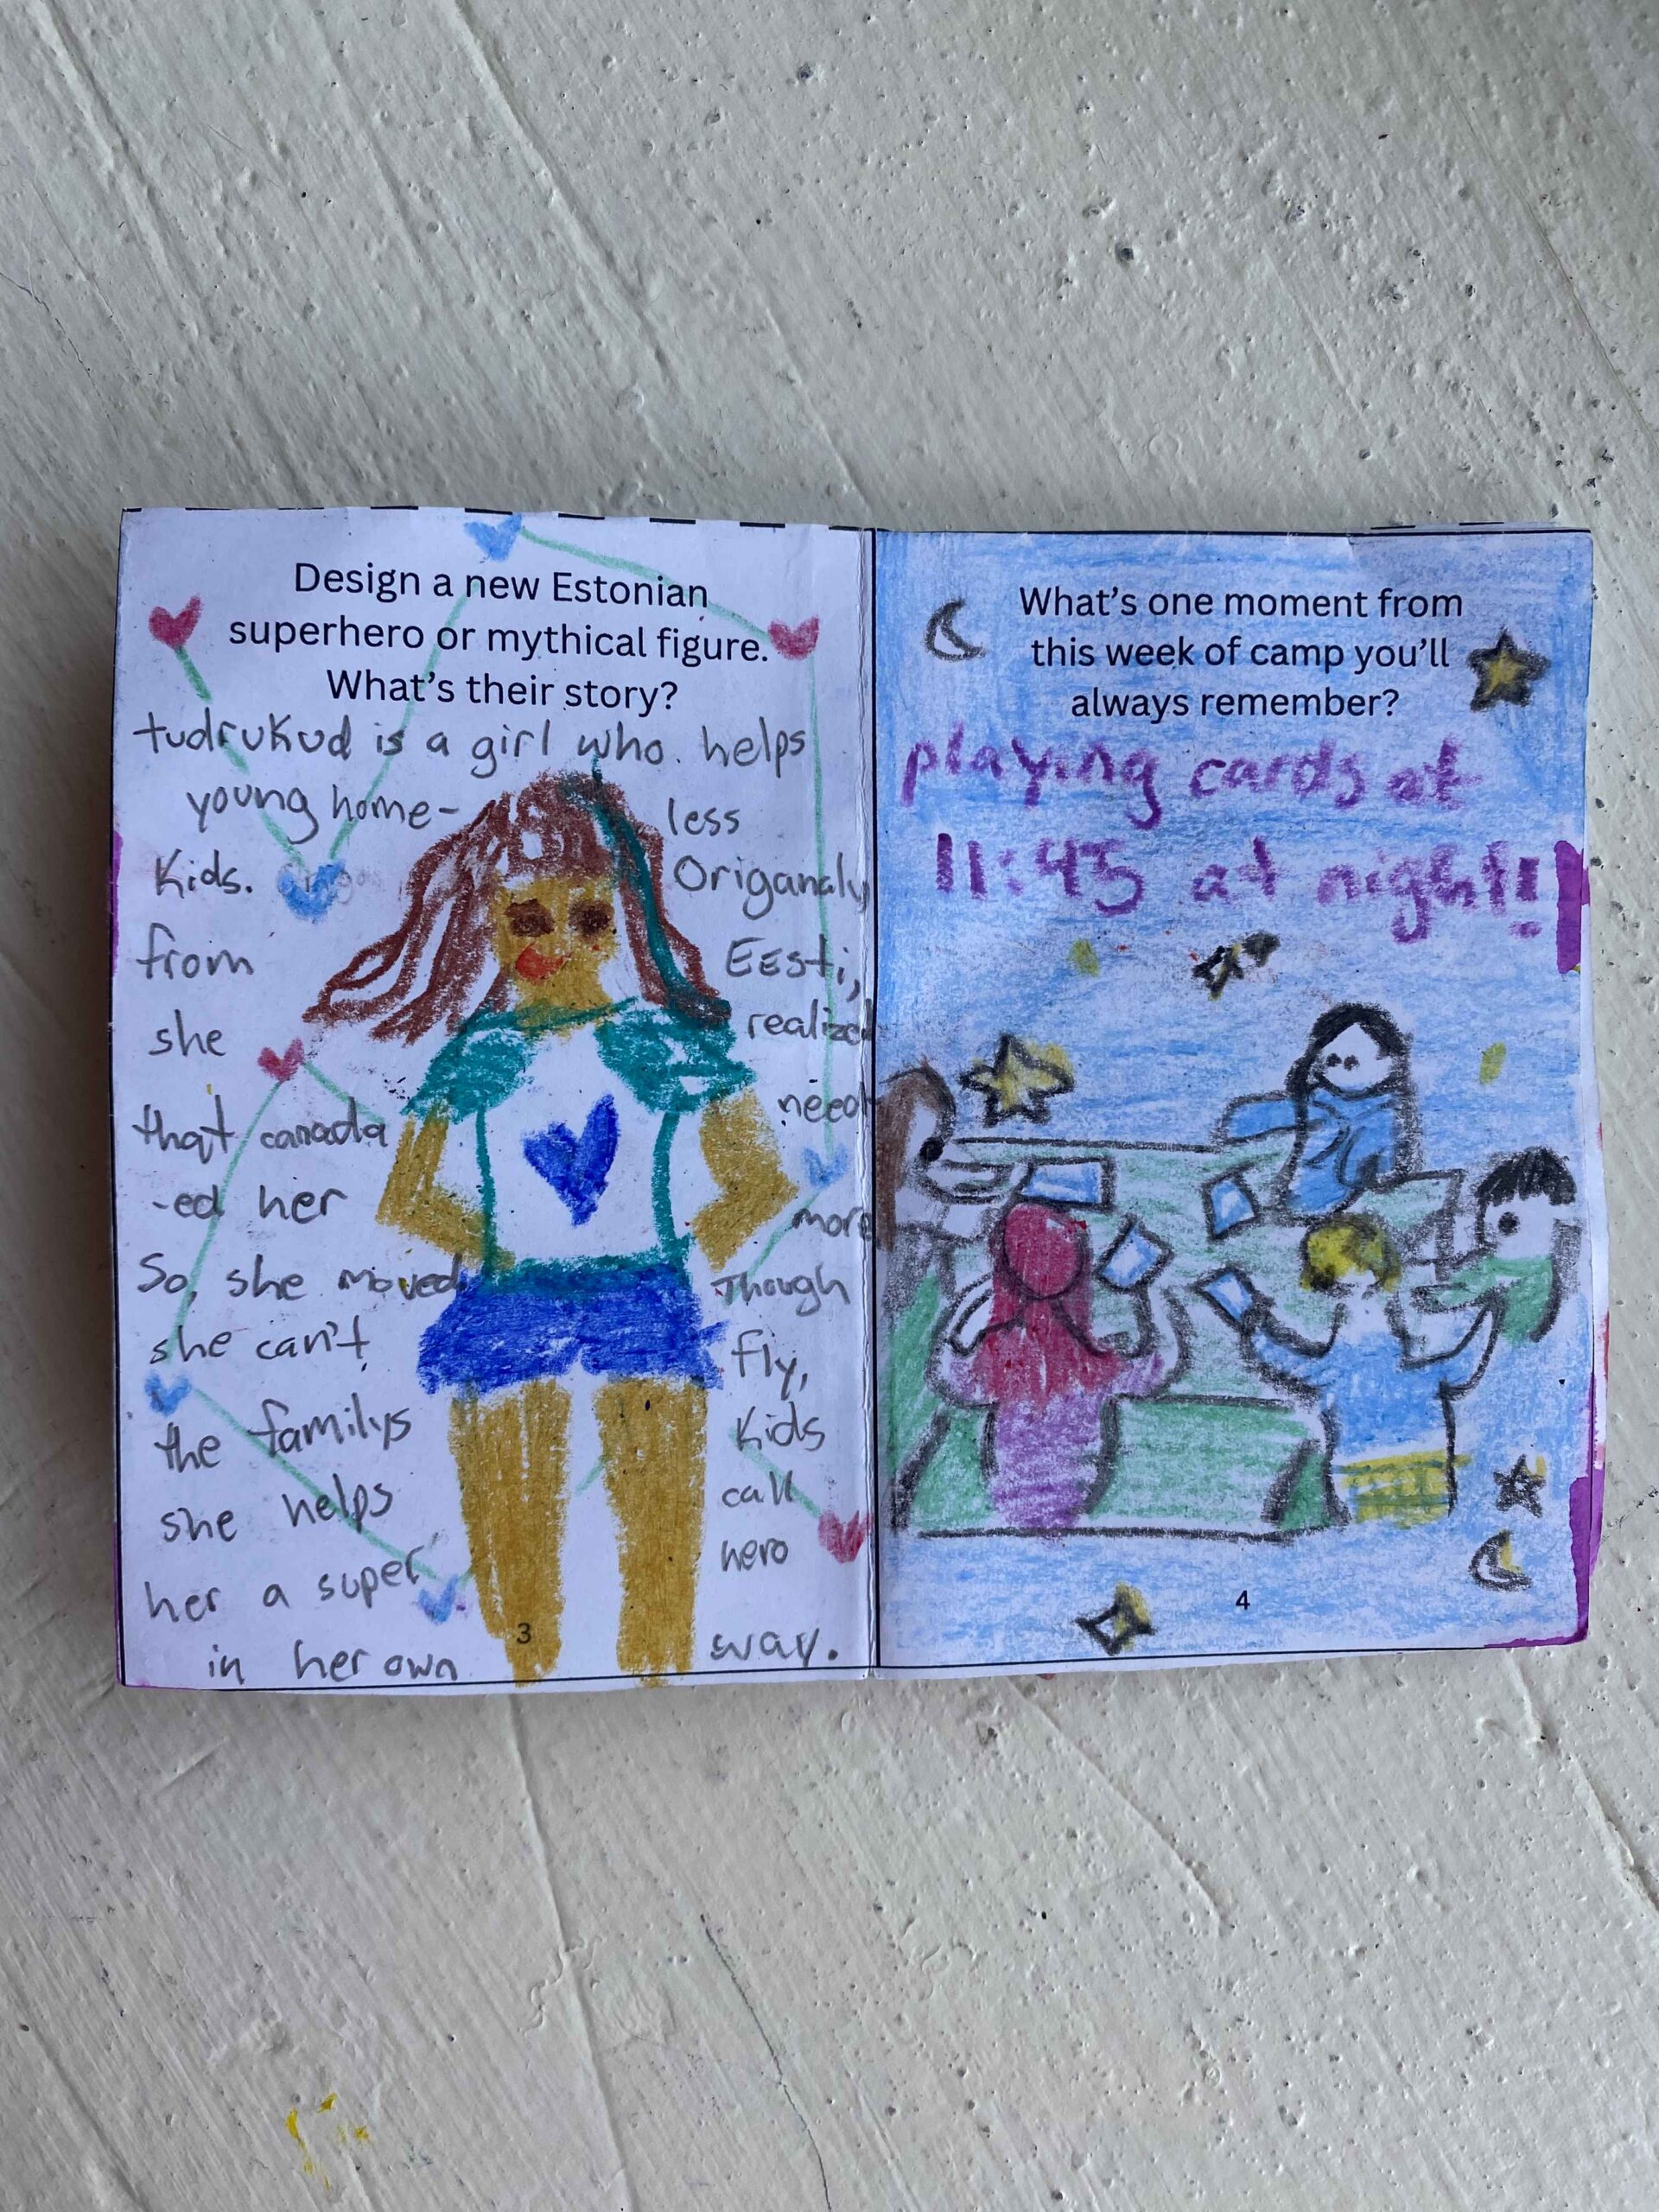 Design a new Estonian
superhero or mythical figure.
What's their story?
tudrukud is a girl who helps
young home- less
Kids. Origanaly
from EEsti,
she realized
that canada need
-ed her more
So, she moved Though
she can't fly,
the familys Kids
she helps call
her a super hero
in her own way.
3
What's one moment from
this week of camp you'll
always remember?
playing cards at
11:45 at night!
4